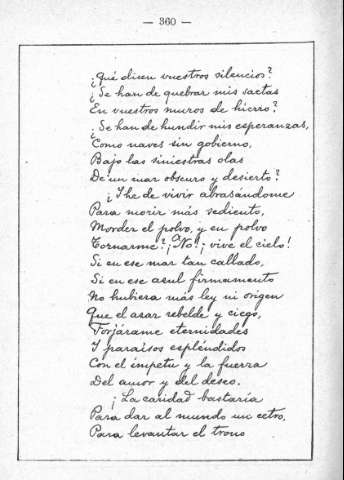 — 360 —
¿Qué dicen vuestros silencios?
¿Se han de quebrar mis saetas
En vuestros muros de hierro?
¿Se han de hundir mis esperanzas,
Como naves sin gobierno,
Bajo las siniestras olas
De un mar obscuro y desierto?
¿Y he de vivir abrasándome
Para morir más sediento,
Morder el polvo, y en polvo
Tornarme? ¡No! ¡vive el cielo!
Si en ese mar tan callado,
Si en ese azul firmamento
No hubiera más ley ni origen
Que el azar rebelde y ciego,
Forjárame eternidades
Y paraísos espléndidos
Con el ímpetu y la fuerza
Del amor y del deseo.
¡La caridad bastaría
Para dar al mundo un cetro,
Para levantar el trono